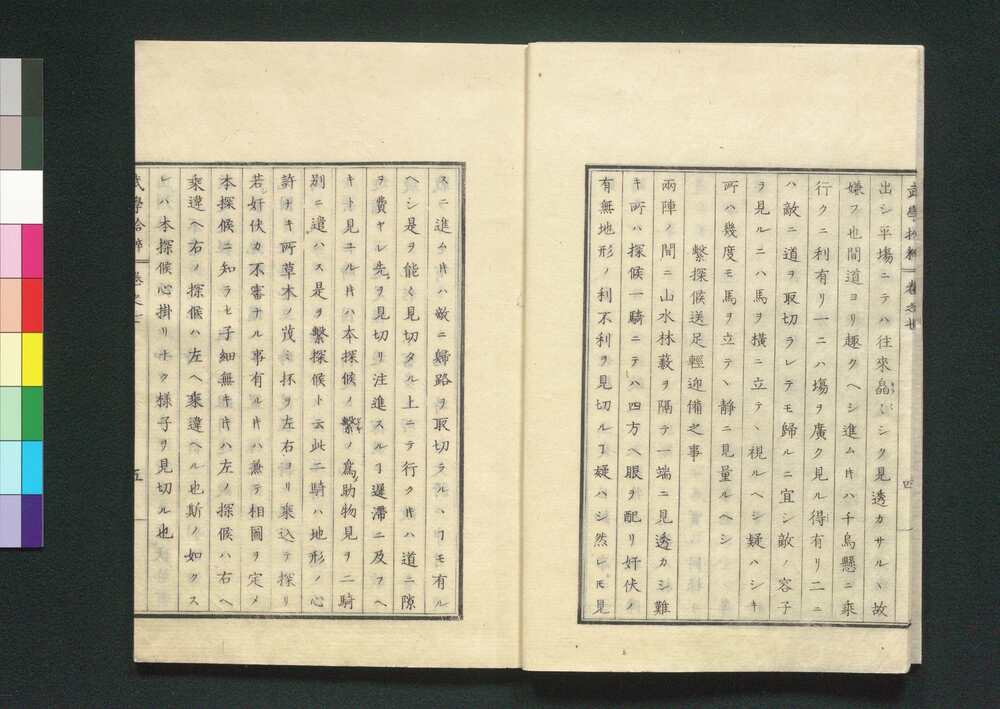 出シ平塲ニテハ往來晶〻シク見透カサルヽ故
嫌フ也間道ヨリ趣クヘシ進ムヰハ千鳥懸ニ乗
行クニ利有リ一ニハ塲ヲ廣ク見ル得有リ二ニ
ハ敵ニ道ヲ取切ラレテモ歸ルニ宜シ敵ノ容子
ヲ見ルニハ馬ヲ横ニ立テヽ視ルヘシ疑ハシキ
所ハ幾度モ馬ヲ立テヽ静ニ見量ルヘシ
繋探候送足輕迎備之事
兩陣ノ間ニ山水林藪ヲ隔テ一端ニ見透カシ難
キ所ハ探候一騎ニテハ四方ヘ眼ヲ配リ奸伏ノ
有無地形ノ利不利ヲ見切ルヿ疑ハシ然レモ見
四
スニ進ムヰハ敵ニ歸路ヲ取切ラルヽヿモ有ル
ヘシ是ヲ能く見切タル上ニテ行クヰハ道ニ隙
ヲ費ヤレ先ヲ見切リ注進スルヿ遲滯ニ及フヘ
キト見ユルヰハ本探候ノ繋ノ爲助物見ヲ二騎
別ニ遣ハス是ヲ繋探候ト云此二騎ハ地形ノ心
許ナキ所草木ノ茂ミ抔ヲ左右ヨリ乘込テ探リ
若奸伏カ不審ナル事有ルヰハ兼テ相圖ヲ定メ
本探候ニ知ラセ子細無キヰハ左ノ探候ハ右ヘ
乘違ヘ右ノ探候ハ左ヘ乘違ヘル也斯ノ如クス
レハ本探候心掛リナク様子ヲ見切ル也
五